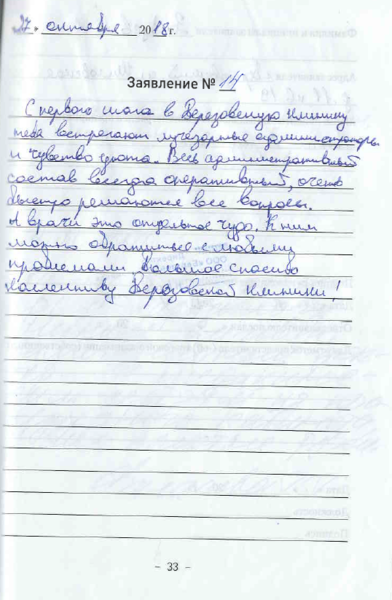 27. октября 2018г.
Заявление № 14
С первого шага в Березовскую Клинику
тебя встречают лучезарные администраторы
и чувство уюта. Весь административный
состав всегда оперативный, очень
быстро решаются все вопросы.
А врачи это отдельное чудо. К ним
можно обратиться с любыми
проблемами. Большое спасибо
Коллективу Березовской Клиники!
- 33 -